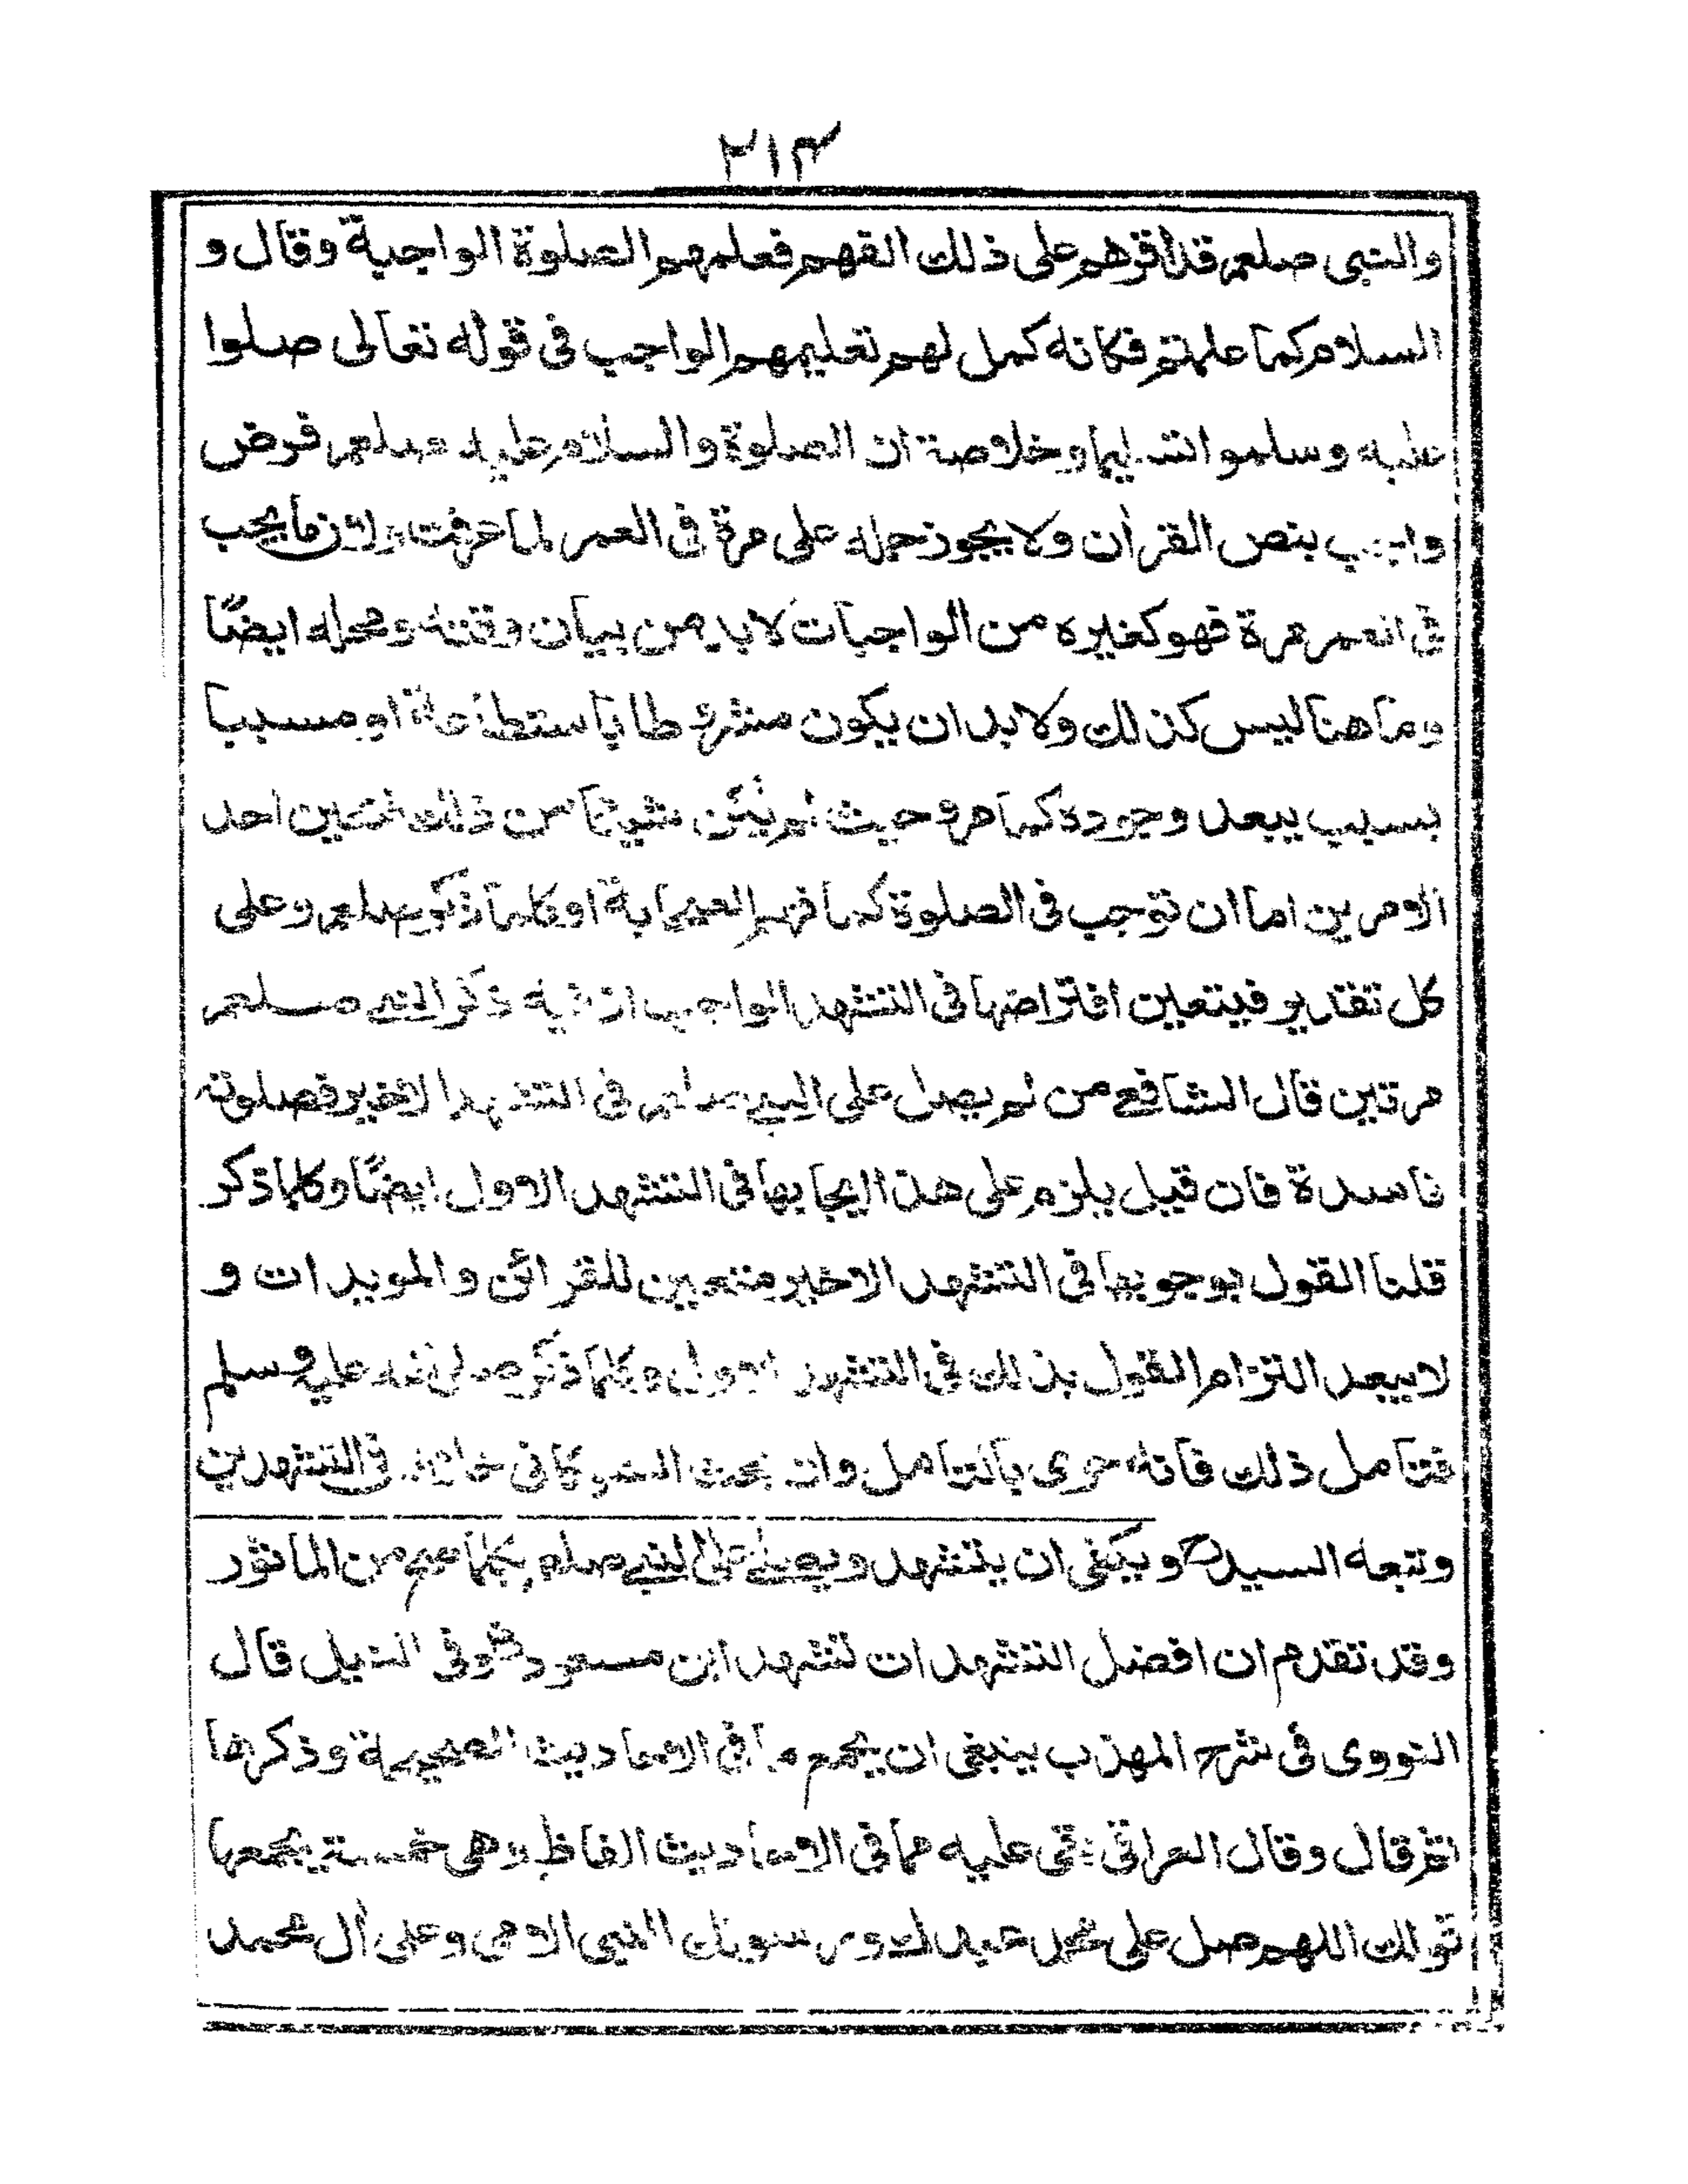 ٣١٣
والنبى صلعم قد اقرهم على ذلك الفهم فعلمهم الصلوة الواجبة وقال و
السلام كما علمتم فكانه كمل لهم تعليمهم الواجب فى قوله تعالى صلوا
عليه وسلموا تسليما وخلاصة ان الصلوة والسلام عليه صلعم فرض
واجب بنص القرأن ولا يجوز حمله على مرة فى العمر لما عرفت ولان ما يجب
فى العمر مرة فهو كغيره من الواجبات لا بد من بيان وقته ومحله ايضًا
وما هنا ليس كذلك ولا بد ان يكون مشروطا باستطاعة او مسببا
بسبب يبعد وجوده كما مر وحيث لم يكن شيئا من ذلك فتعين احد
الامرين اما ان توجب فى الصلوة كما فهم الصحابة او كلما ذكر صلعم وعلى
كل تقدير فيتعين افتراضها فى التشهد الواجب اذ فيه ذكر النبى صلعم
مرتين قال الشافعى من لم يصل على النبى صلعم فى التشهد الاخير فصلوته
فاسدة فان قيل يلزم على هذا ايجابها فى التشهد الاول ايضًا وكلما ذكر
قلنا القول بوجوبها فى التشهد الاخير متعين للقرائن والمويدات و
لا يبعد التزام القول بذلك فى التشهد الاول وكلما ذكر صلى الله عليه وسلم
فتامل ذلك فانه حرى بالتامل وان بحث الشوكانى فى التشهدين
وتبعه السيدرح ويكفى ان يتشهد ويصلى على النبى صلعم بكلما صح من الماثور
وقد تقدم ان افضل التشهدات تشهد ابن مسعود رض وفى النيل قال
النووى فى شرح المهذب ينبغى ان يجمع ما فى الاحاديث الصحيحة وذكرها
ثم قال وقال العراقى بقى عليه مما فى الاحاديث الفاظ وهى خمسة يجمعها
قولك اللهم صل على محمد عبدك ورسولك النبى الامى وعلى أل محمد